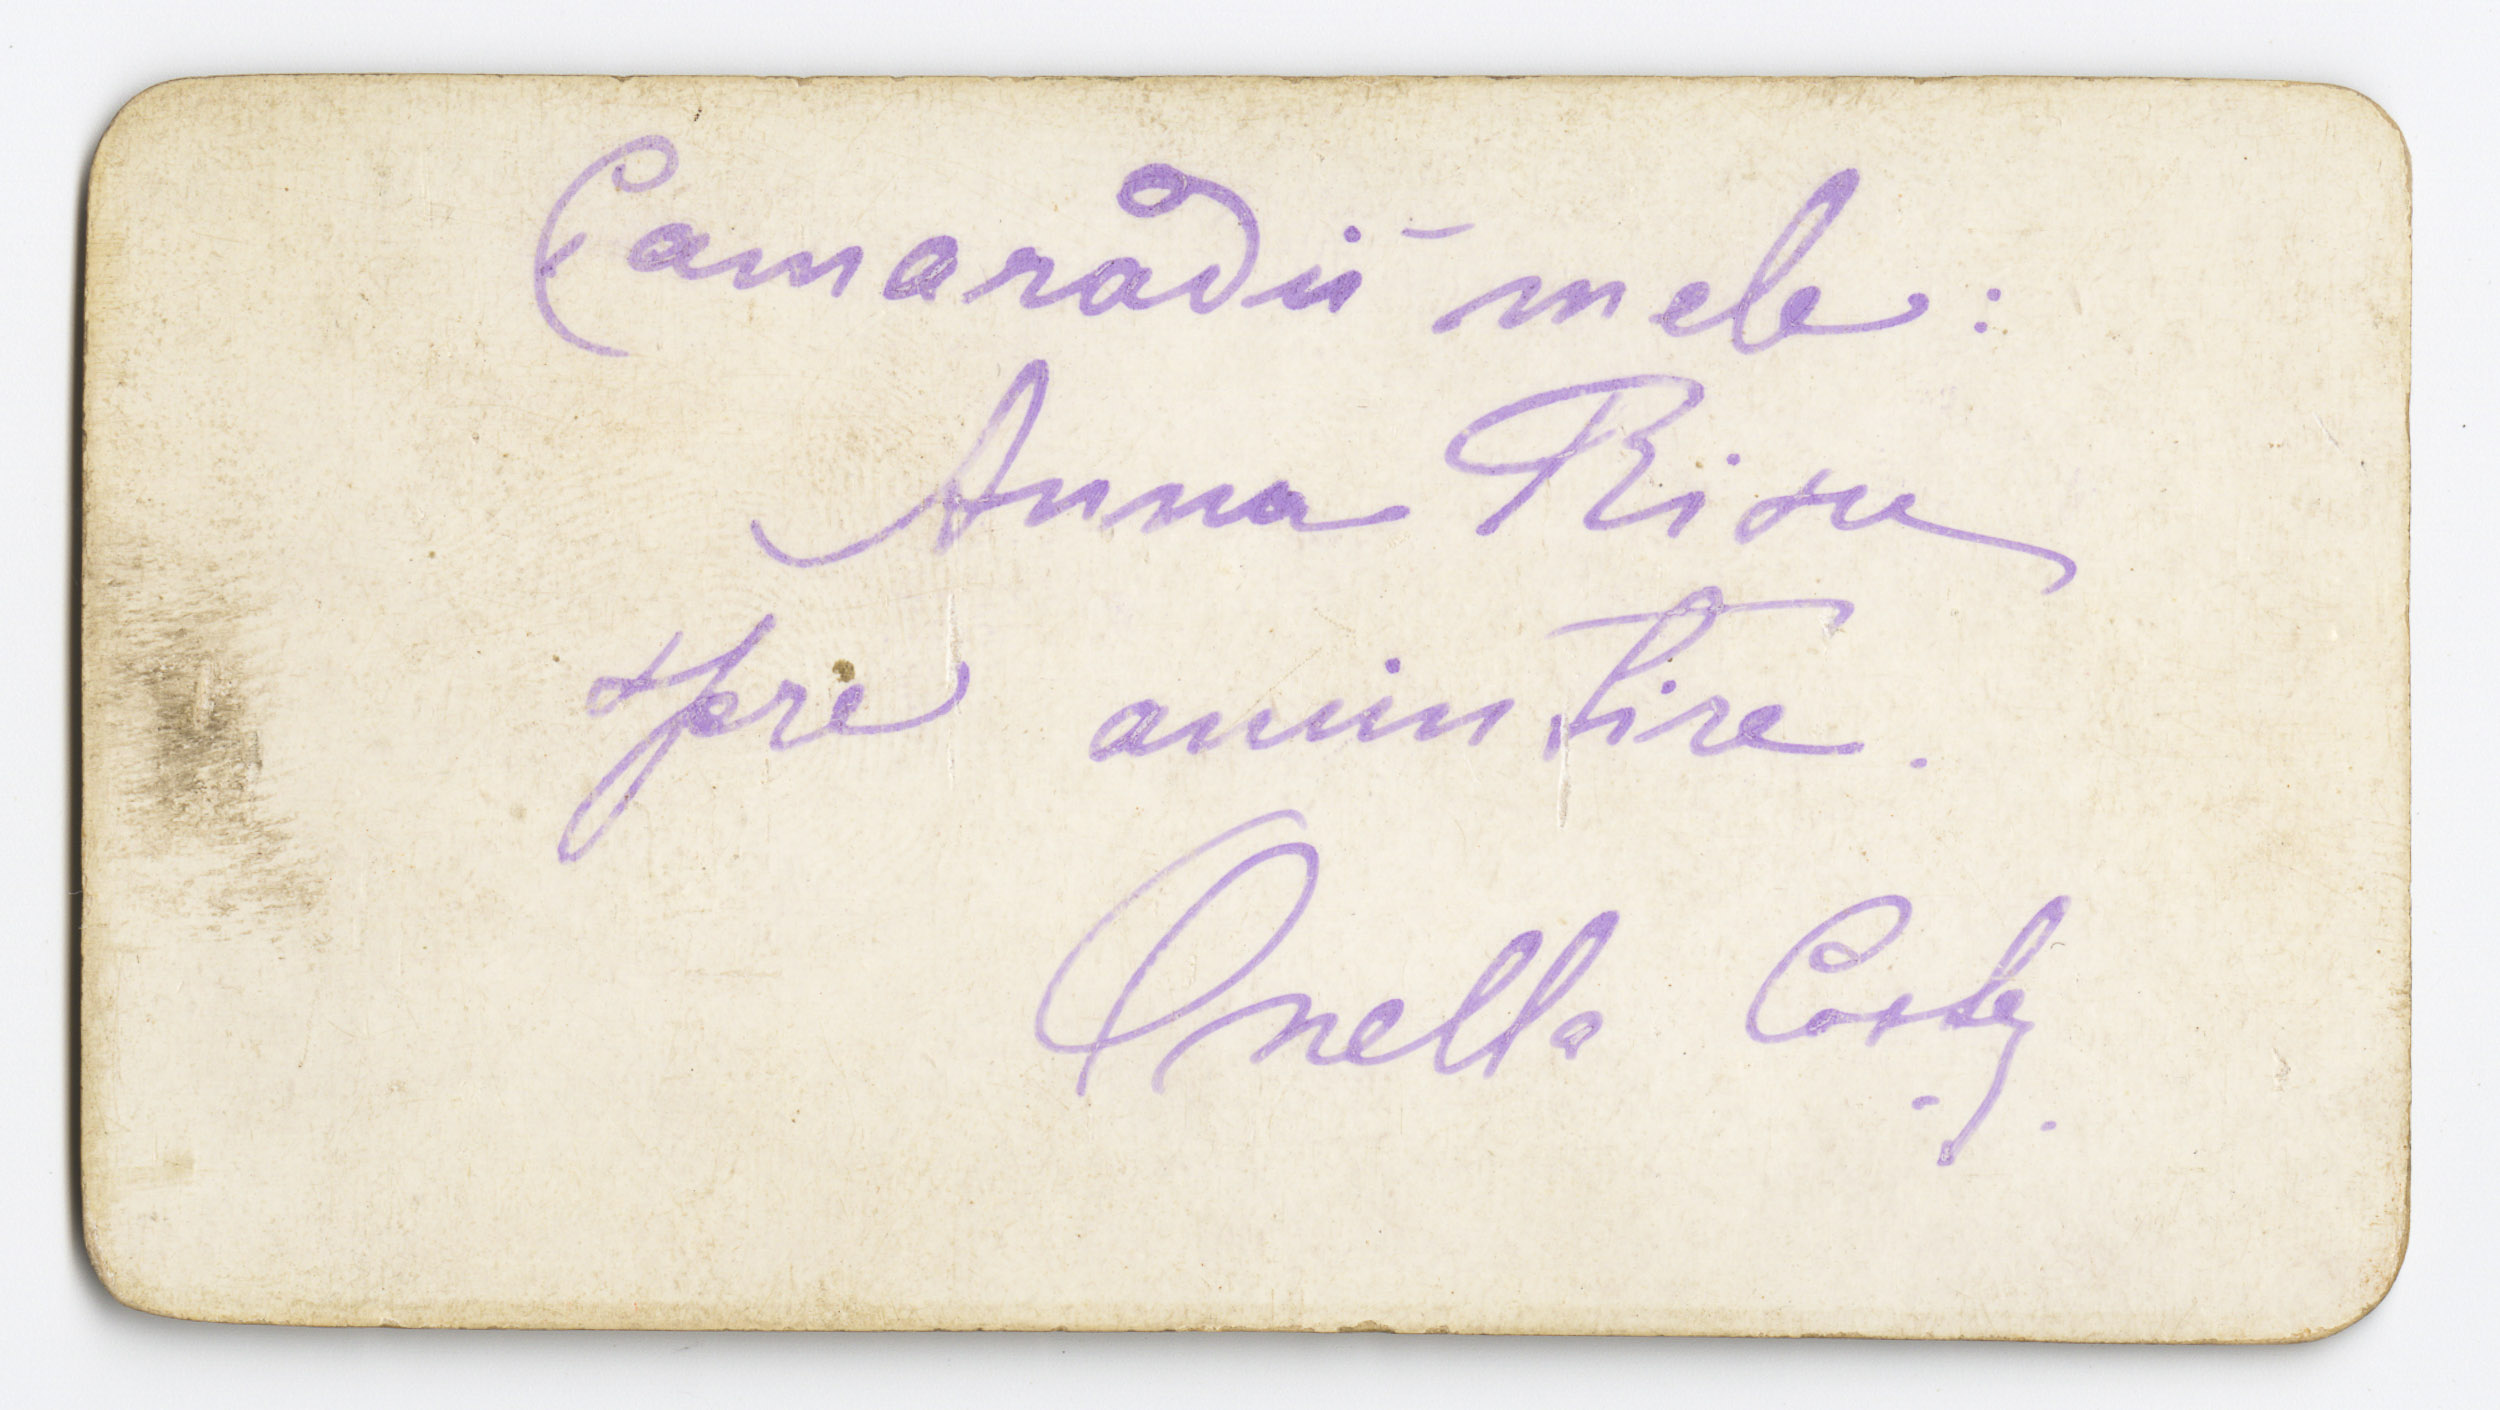 Camaradii mele:
Anna Risu
spre amintire.
Onella Costy.